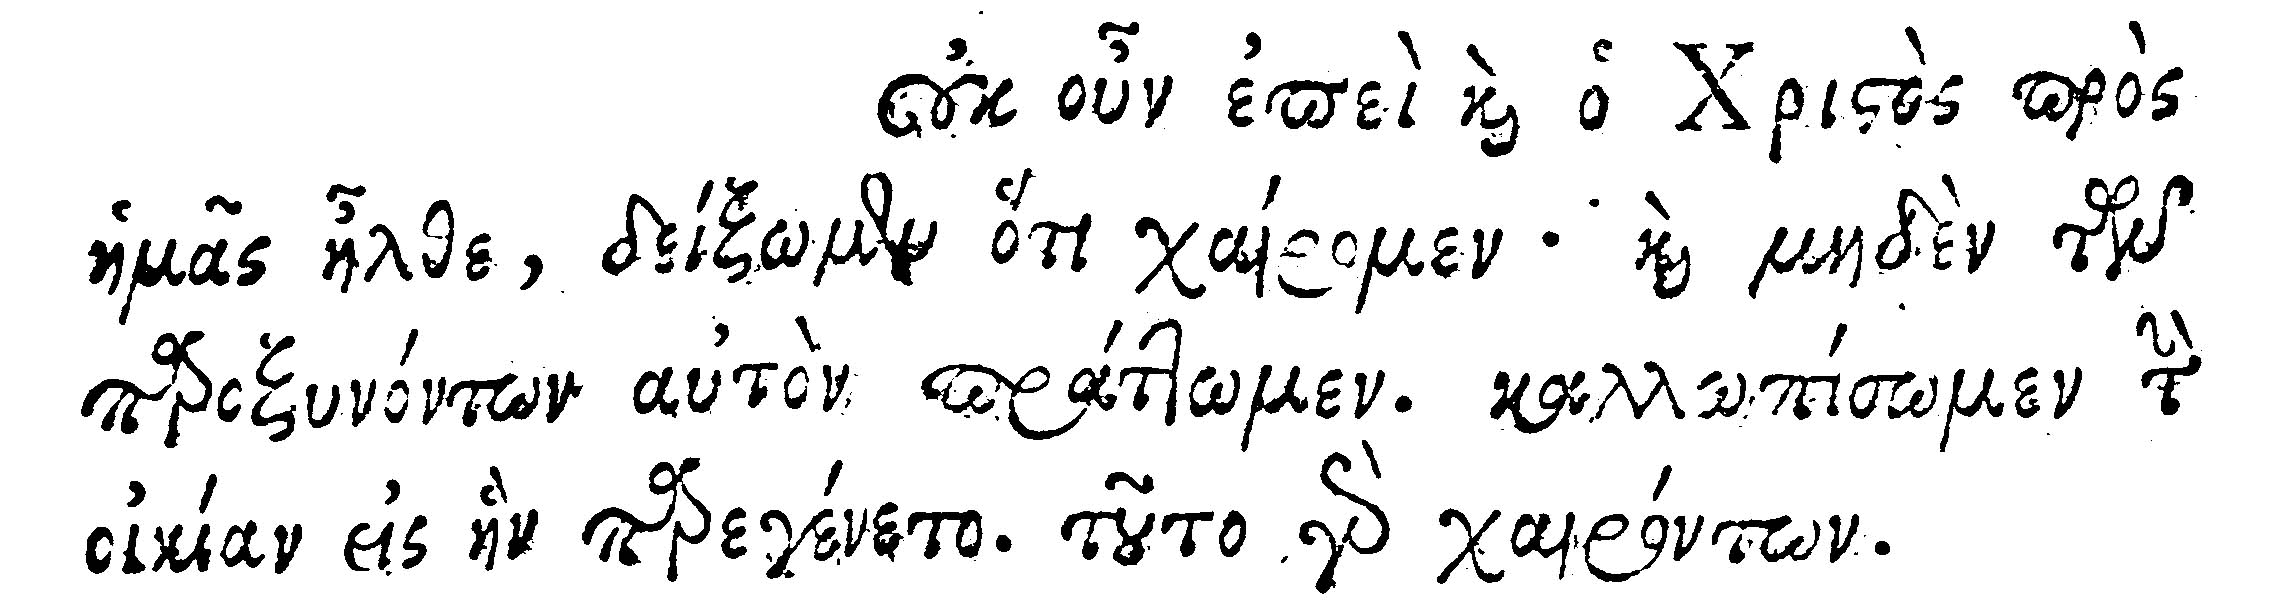 Οὐκ οὖν ἐπεὶ καὶ ὁ Χριστὸς πρὸς
ἡμᾶς ἦλθε, δείξωμεν ὅτι χαίρομεν· καὶ μηδὲν τῶν
παροξυνόντων αὐτὸν πράττωμεν. καλλωπίσωμεν τὴν
οἰκίαν εἰς ἣν παρεγένετο. τοῦτο γὰρ χαιρόντων.